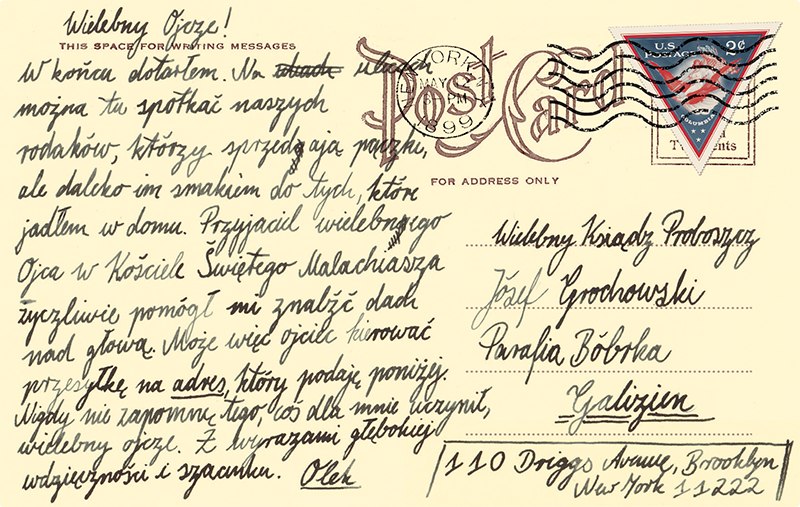 Wielebny Ojcze!
THIS SPACE FOR WRITING MESSAGES
W końcu dotarłem. Na ulicach
można tu spotkać naszych
rodaków, którzy sprzedają pączki,
ale daleko im smakiem do tych, które
jadłem w domu. Przyjaciel wielebnego
Ojca w Kościele Świętego Malachiasza
życzliwie pomógł mi znaleźć dach
nad głową. Może więc ojciec kierować
przesyłkę na adres, który podaję poniżej.
Nigdy nie zapomnę tego, coś dla mnie uczynił,
wielebny ojcze. Z wyrazami głębokiej
wdzięczności i szacunku. Olek
Post Card
NEW YORK
MAY
PM
1899
U.S.
POSTAGE
2¢
COLUMBIA
FOR ADDRESS ONLY
Wielebny Ksiądz Proboszcz
Józef Grochowski
Parafia Bóbrka
Galizien
110 Driggs Avenue, Brooklyn
New York 11222